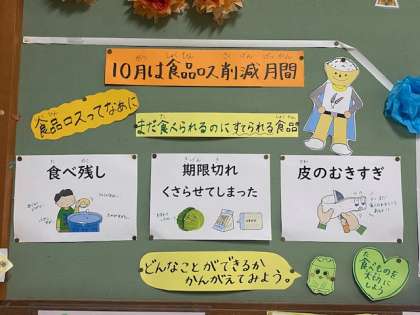 10月は食品ロス削減月間
食品ロスってなあに
まだ食べられるのにすてられる食品
食べ残し
期限切れ
くさらせてしまった
皮のむきすぎ
どんなことができるか
かんがえてみよう。
食べものを
大切に
しよう